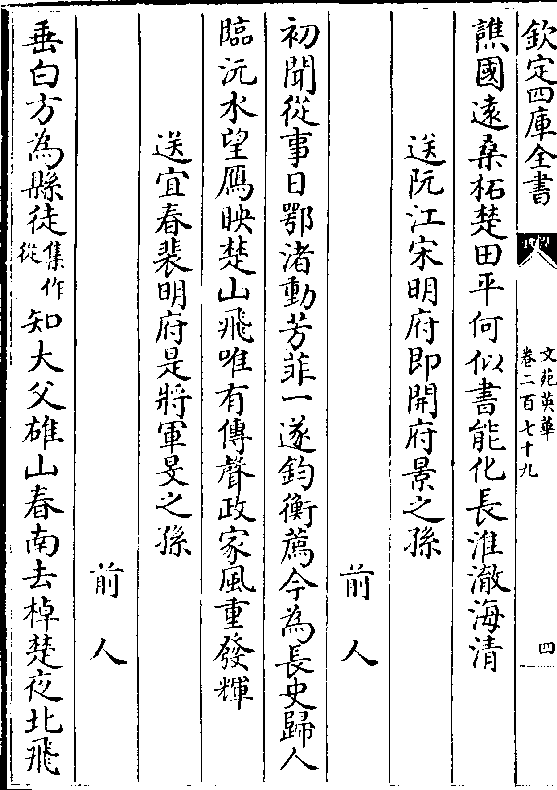 欽定四庫全書
文苑英華
卷二百七十九
四
譙國遠桑柘楚田平何似書能化長淮澈海清
送阮江宋明府即開府景之孫
前人
初聞從事日鄂渚動芳菲一遂鈞衡薦今為長史歸人
臨沅水望鴈映楚山飛唯有傳聲政家風重發輝
送宜春裴明府是將軍旻之孫
前人
垂白方為縣徒集作從知大父雄山春南去棹楚夜北飛